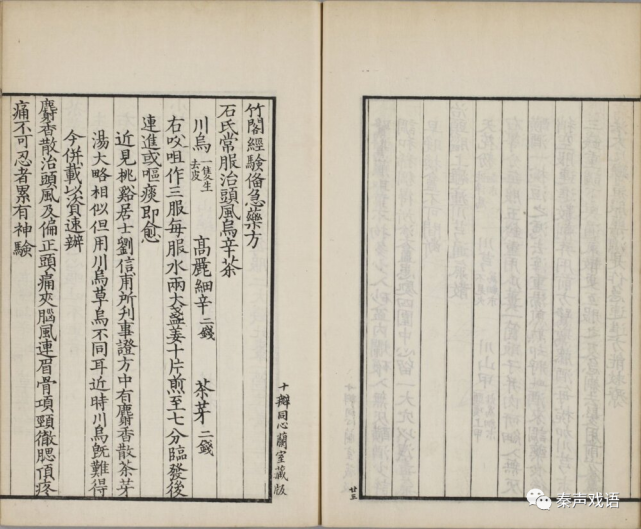 竹閣經驗偹急藥方
石氏常服治頭風烏辛茶
川烏一隻生去皮 高麗細辛二錢 茶芽二錢
右㕮咀作三服每服水兩大盞姜十片煎至七分臨發後
連進或嘔痰即愈
近見桃谿居士劉信甫所刋事證方中有麝香散茶芽
湯大略相似但用川烏草烏不同耳近時川烏旣難得
今併載以資速辨
麝香散治頭風及偏正頭痛夾腦風連眉骨項頸徹腮頂疼
痛不可忍者累有神驗
十瓣同心蘭室藏版
廿五
秦声戏语